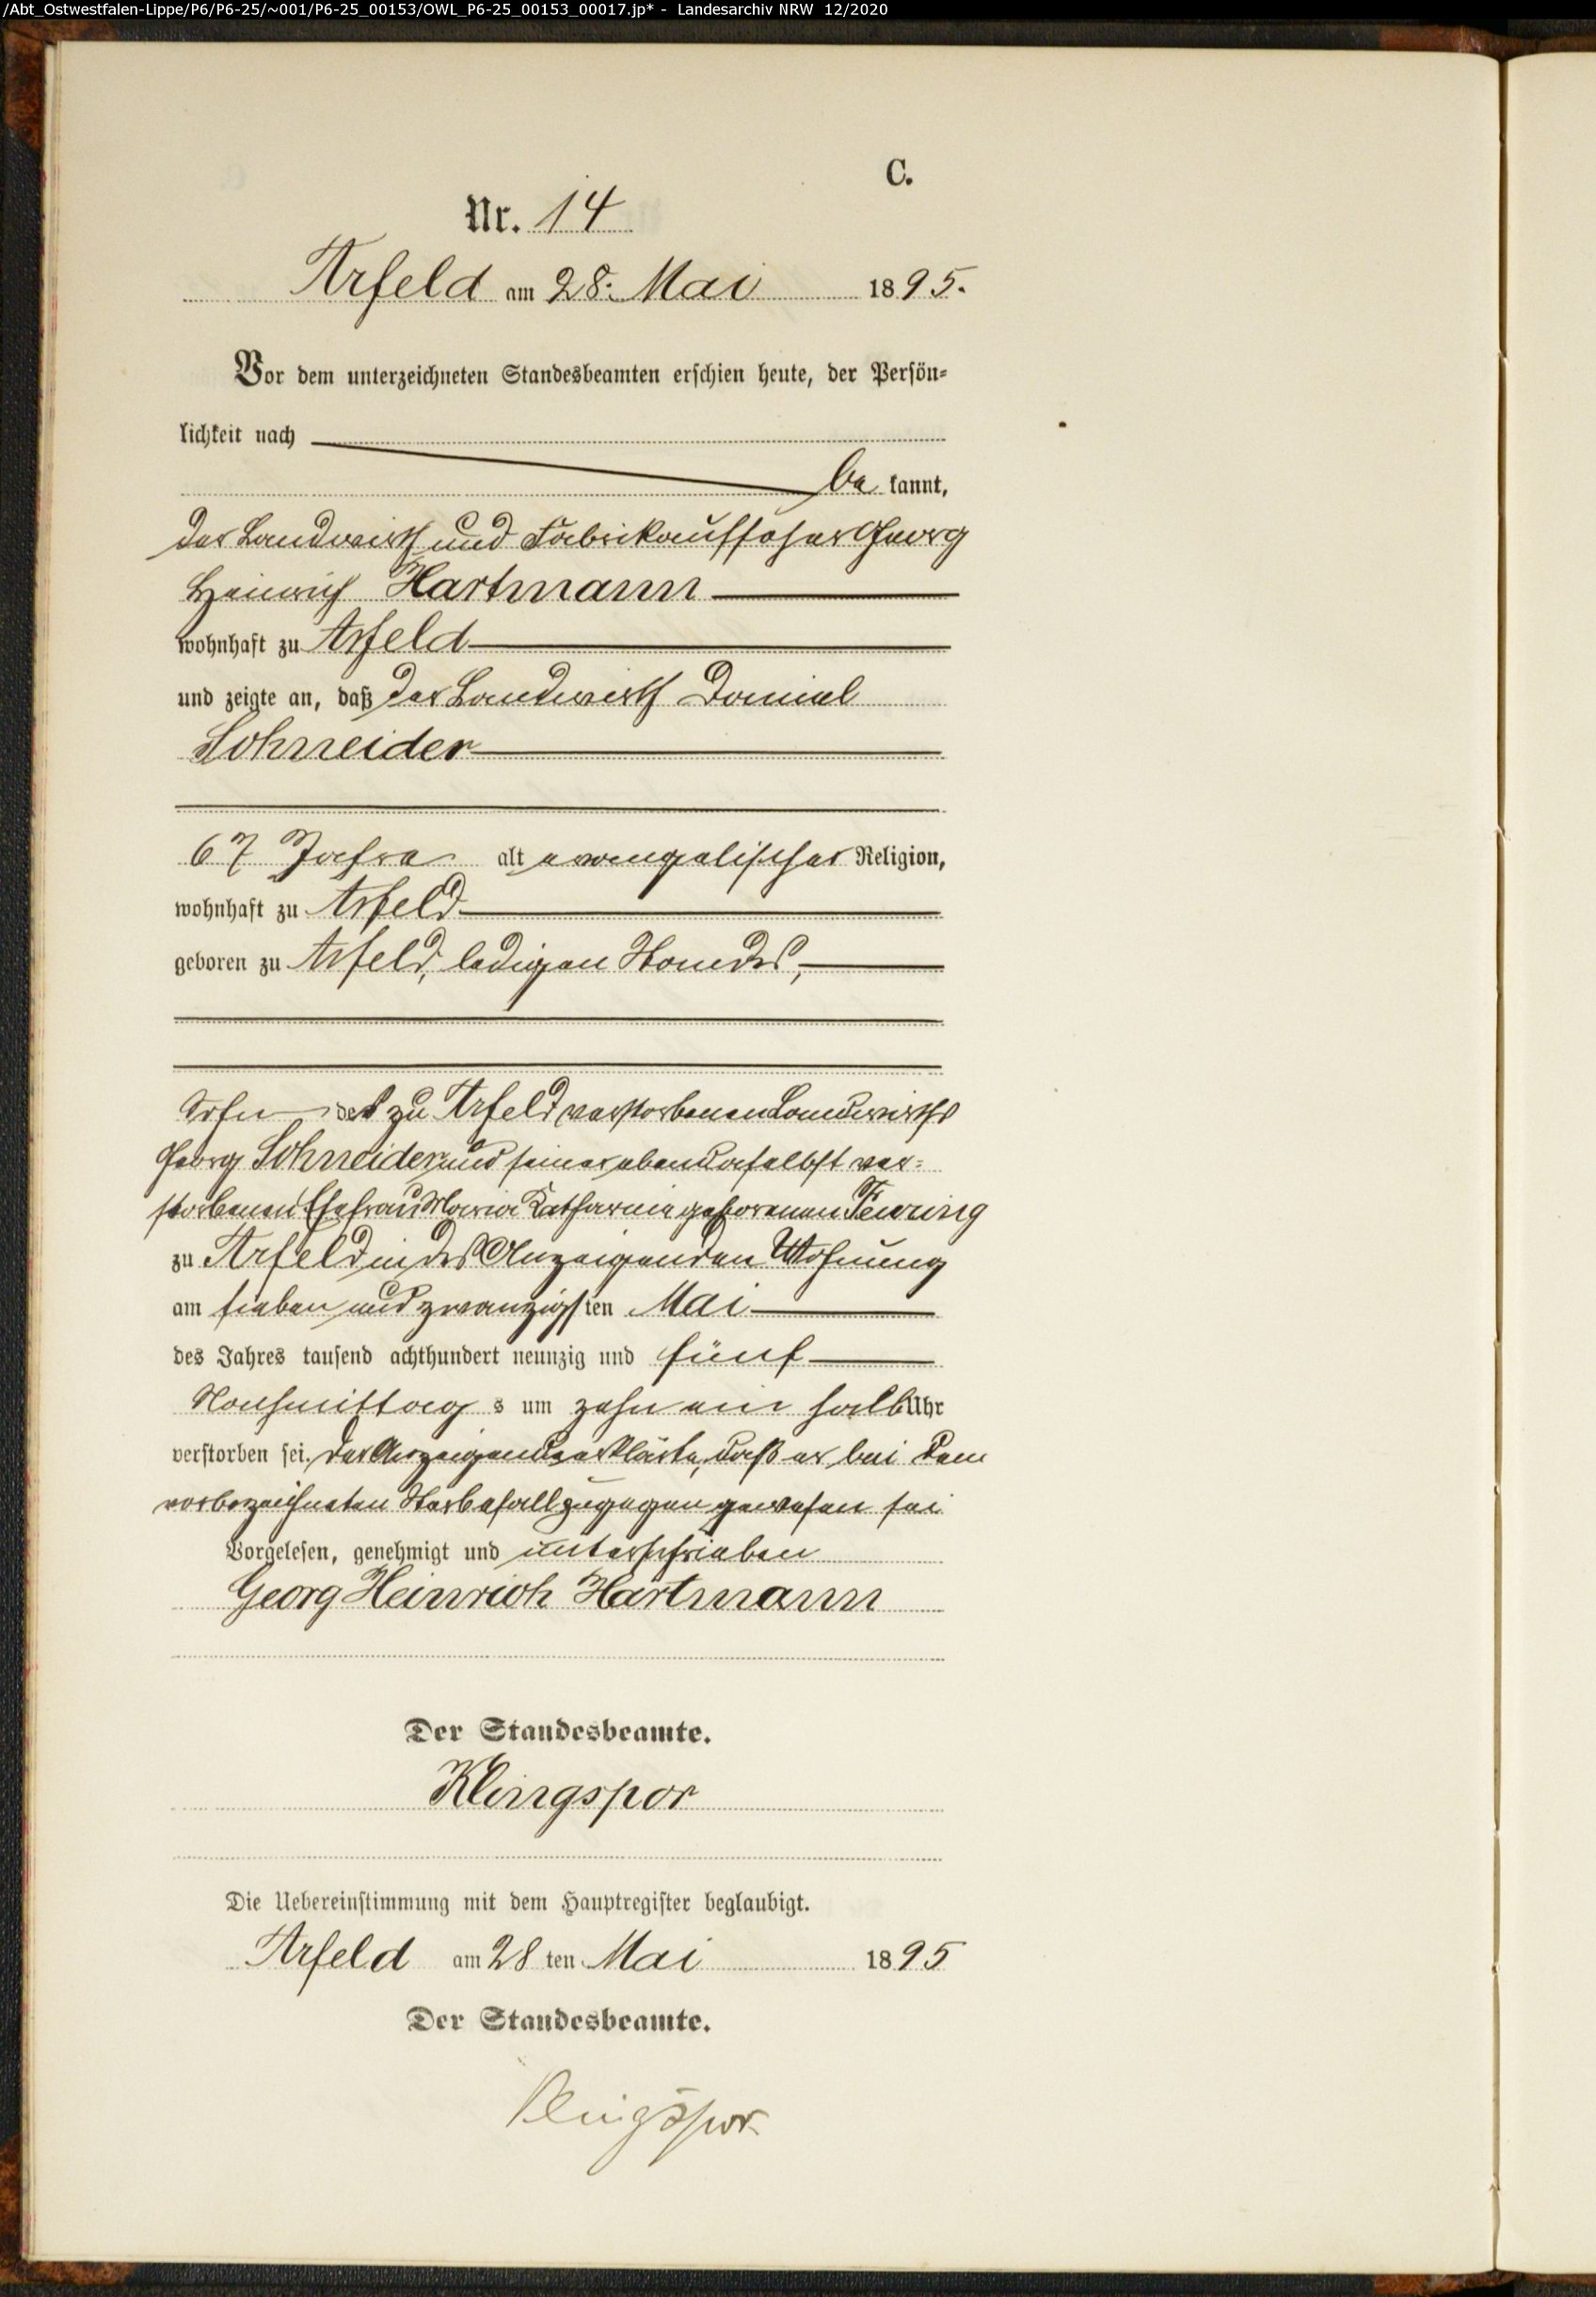 /Abt_Ostwestfalen-Lippe/P6/P6-25/~001/P6-25_00153/OWL_P6-25_00153_00017.jp* - Landesarchiv NRW 12/2020
C.
Nr. 14
Arfeld am 28. Mai 1895.
Vor dem unterzeichneten Standesbeamten erschien heute, der Persön-
lichkeit nach
be kannt,
der Landwirth und Fabrikaufseher Georg
Heinrich Hartmann
wohnhaft zu Arfeld
und zeigte an, daß der Landwirth Daniel
Schneider
67 Jahre alt evangelischer Religion,
wohnhaft zu Arfeld
geboren zu Arfeld, ledigen Standes,
Sohn des zu Arfeld verstorbenen Landwirths
Georg Schneider und seiner ebendaselbst ver-
storbenen Ehefrau Maria Katharine geborenen
zu Arfeld in des Anzeigenden Wohnung
am sieben und zwanzigsten Mai
des Jahres tausend achthundert neunzig und fünf
Nachmittag s um zehn ein halb Uhr
verstorben sei. Der Anzeigende erklärte, daß er bei dem
vorbezeichneten Sterbefall zugegen gewesen sei
Vorgelesen, genehmigt und unterschrieben
Georg Heinrich Hartmann
Der Standesbeamte.
Klingspor
Die Uebereinstimmung mit dem Hauptregister beglaubigt.
Arfeld am 28 ten Mai 1895
Der Standesbeamte.
Klingspor